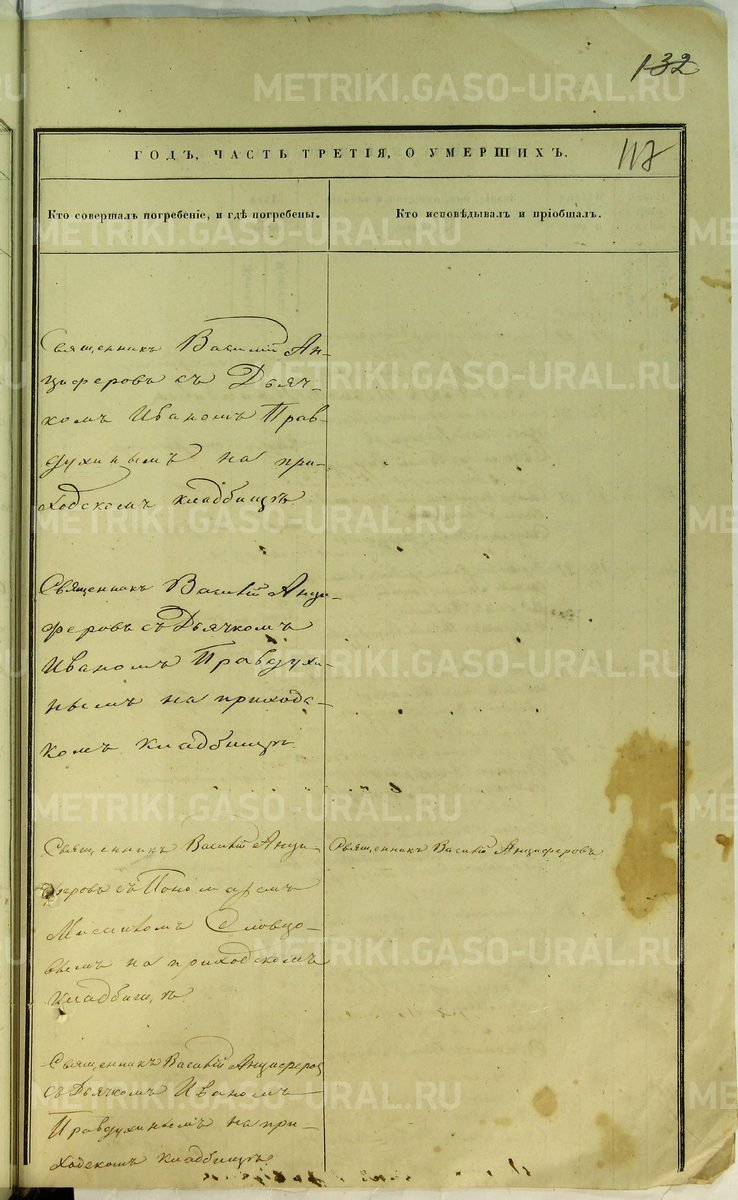 132
117
ГОДЪ, ЧАСТЬ ТРЕТІЯ, О УМЕРШИХЪ.
Кто совершалъ погребеніе, и гдѣ погребены.
Кто исповѣдывалъ и пріобщалъ.
Священникъ Василій Ан-
циферовъ съ Дьяч-
комъ Иваномъ Прав-
духинымъ на при-
ходскомъ кладбищѣ
Священникъ Василій Анци-
феровъ съ Дьячкомъ
Иваномъ Правдухи-
нымъ на приходс-
комъ кладбищѣ
Священникъ Василій Анци-
феровъ съ Пономаремъ
Словцо-
вымъ на приходскомъ
кладбищѣ
Священникъ Василій Анциферовъ
Священникъ Василій Анциферовъ
съ Дьячкомъ Иваномъ
Правдухинымъ на при-
ходскомъ кладбищѣ
METRIKI.GASO-URAL.RU